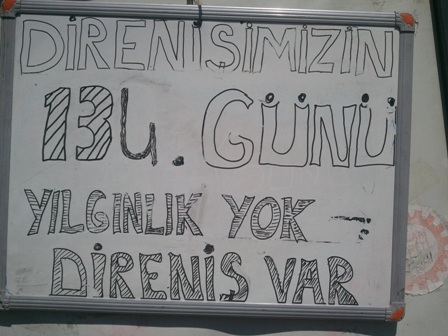 DİRENİŞİMİZİN
134. GÜNÜ
YILGINLIK YOK
DİRENİŞ VAR